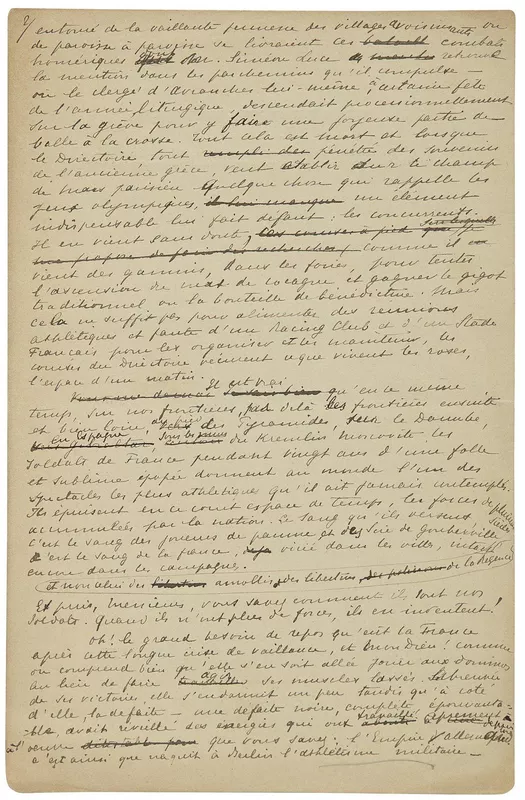 2/ entouré de la vaillante jeunesse des villages avoisinants ou
de paroisse à paroisse se livraient ces combats
homériques dont Mr. Siméon Luce a retrouvé
la mention dans les parchemins qu'il compulse —
où le clergé d'Avranches lui-même à certaine fête
de l'année liturgique descendait processionnellement
sur la grève pour y faire une joyeuse partie de
balle à la crosse. Tout cela est mort et lorsque
le Directoire, tout pénétré des souvenirs
de l'ancienne grèce, veut établir sur le champ
de mars parisien quelque chose qui rappelle les
jeux olympiques, il lui manque un élément
indispensable lui fait défaut : les concurrents.
Il en vient sans doute, les courses à pied que
comme il en
vient des gamins, dans les foires, pour tenter
l'ascension du mat de cocagne et gagner le gigot
traditionnel ou la bouteille de bénédictine. Mais
cela ne suffit pas pour alimenter des réunions
athlétiques et faute d'un Racing Club et d'un Stade
Français pour les organiser et les maintenir, les
courses du Directoire vécurent ce que vivent les roses,
l'espace d'un matin. Il est vrai
qu'en ce même
temps, sur nos frontières, par delà les frontières ensuite
et bien loin, au pied des Pyramides, sur le Danube,
en Espagne, sous les murs du Kremlin moscovite les
soldats de France pendant vingt ans d'une folle
et sublime épopée donnent au monde l'un des
spectacles les plus athlétiques qu'il ait jamais contemplés.
Ils épuisent en ce court espace de temps, les forces de plusieurs siècles
accumulées par la nation. Le sang qu'ils versent
c'est le sang des joueurs de paume et des Sire de Gouberville
c'est le sang de la france, vicié dans les villes, intact
encore dans les campagnes.
et non celui des amollis, des libertins, de la Régence
Et puis, Messieurs, vous savez comment ils sont nos
soldats. Quand ils n'ont plus de forces, ils en inventent !
Oh ! le grand besoin de repos qu'eut la France
après cette longue crise de vaillance, et mon Dieu ! comme
on comprend bien qu'elle s'en soit allée jouer aux dominos
au lieu de faire agir ses muscles lassés. Enivrée
de ses victoires, elle s'endormit un peu tandis qu'à côté
d'elle, la défaite — une défaite noire, complète, épouvanta-
-ble, avait réveillé des énergies qui ont travaillé âprement, depuis lors, à
l'œuvre que vous savez : l'Empire allemand
et c'est ainsi que naquit à Berlin l'athlétisme militaire —